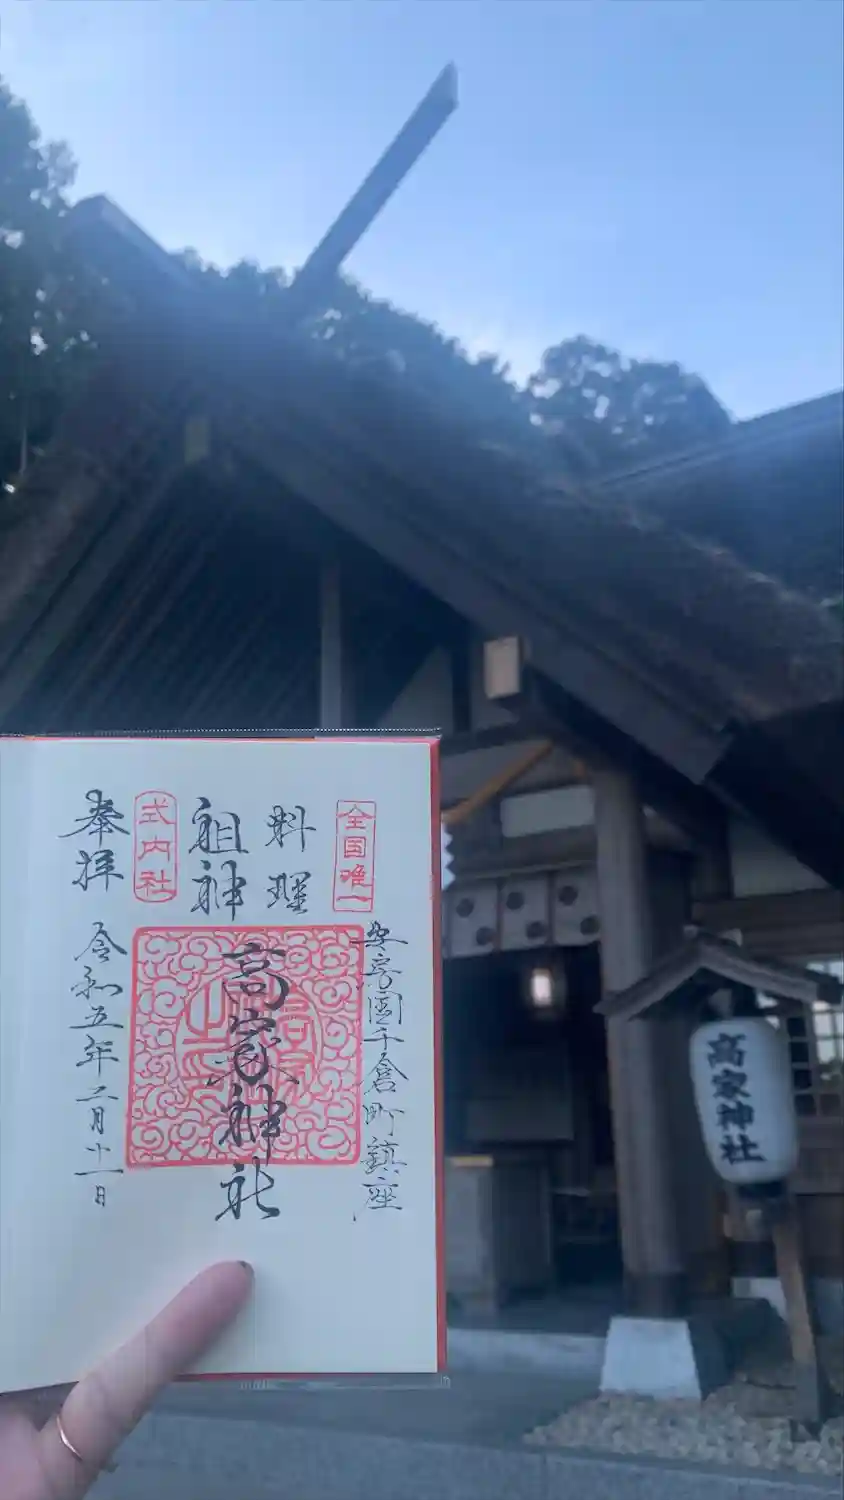 全国唯一
安房國千倉町鎮座
料理
祖神
高家神社
式内社
奉拝
令和五年二月十一日
高家神社